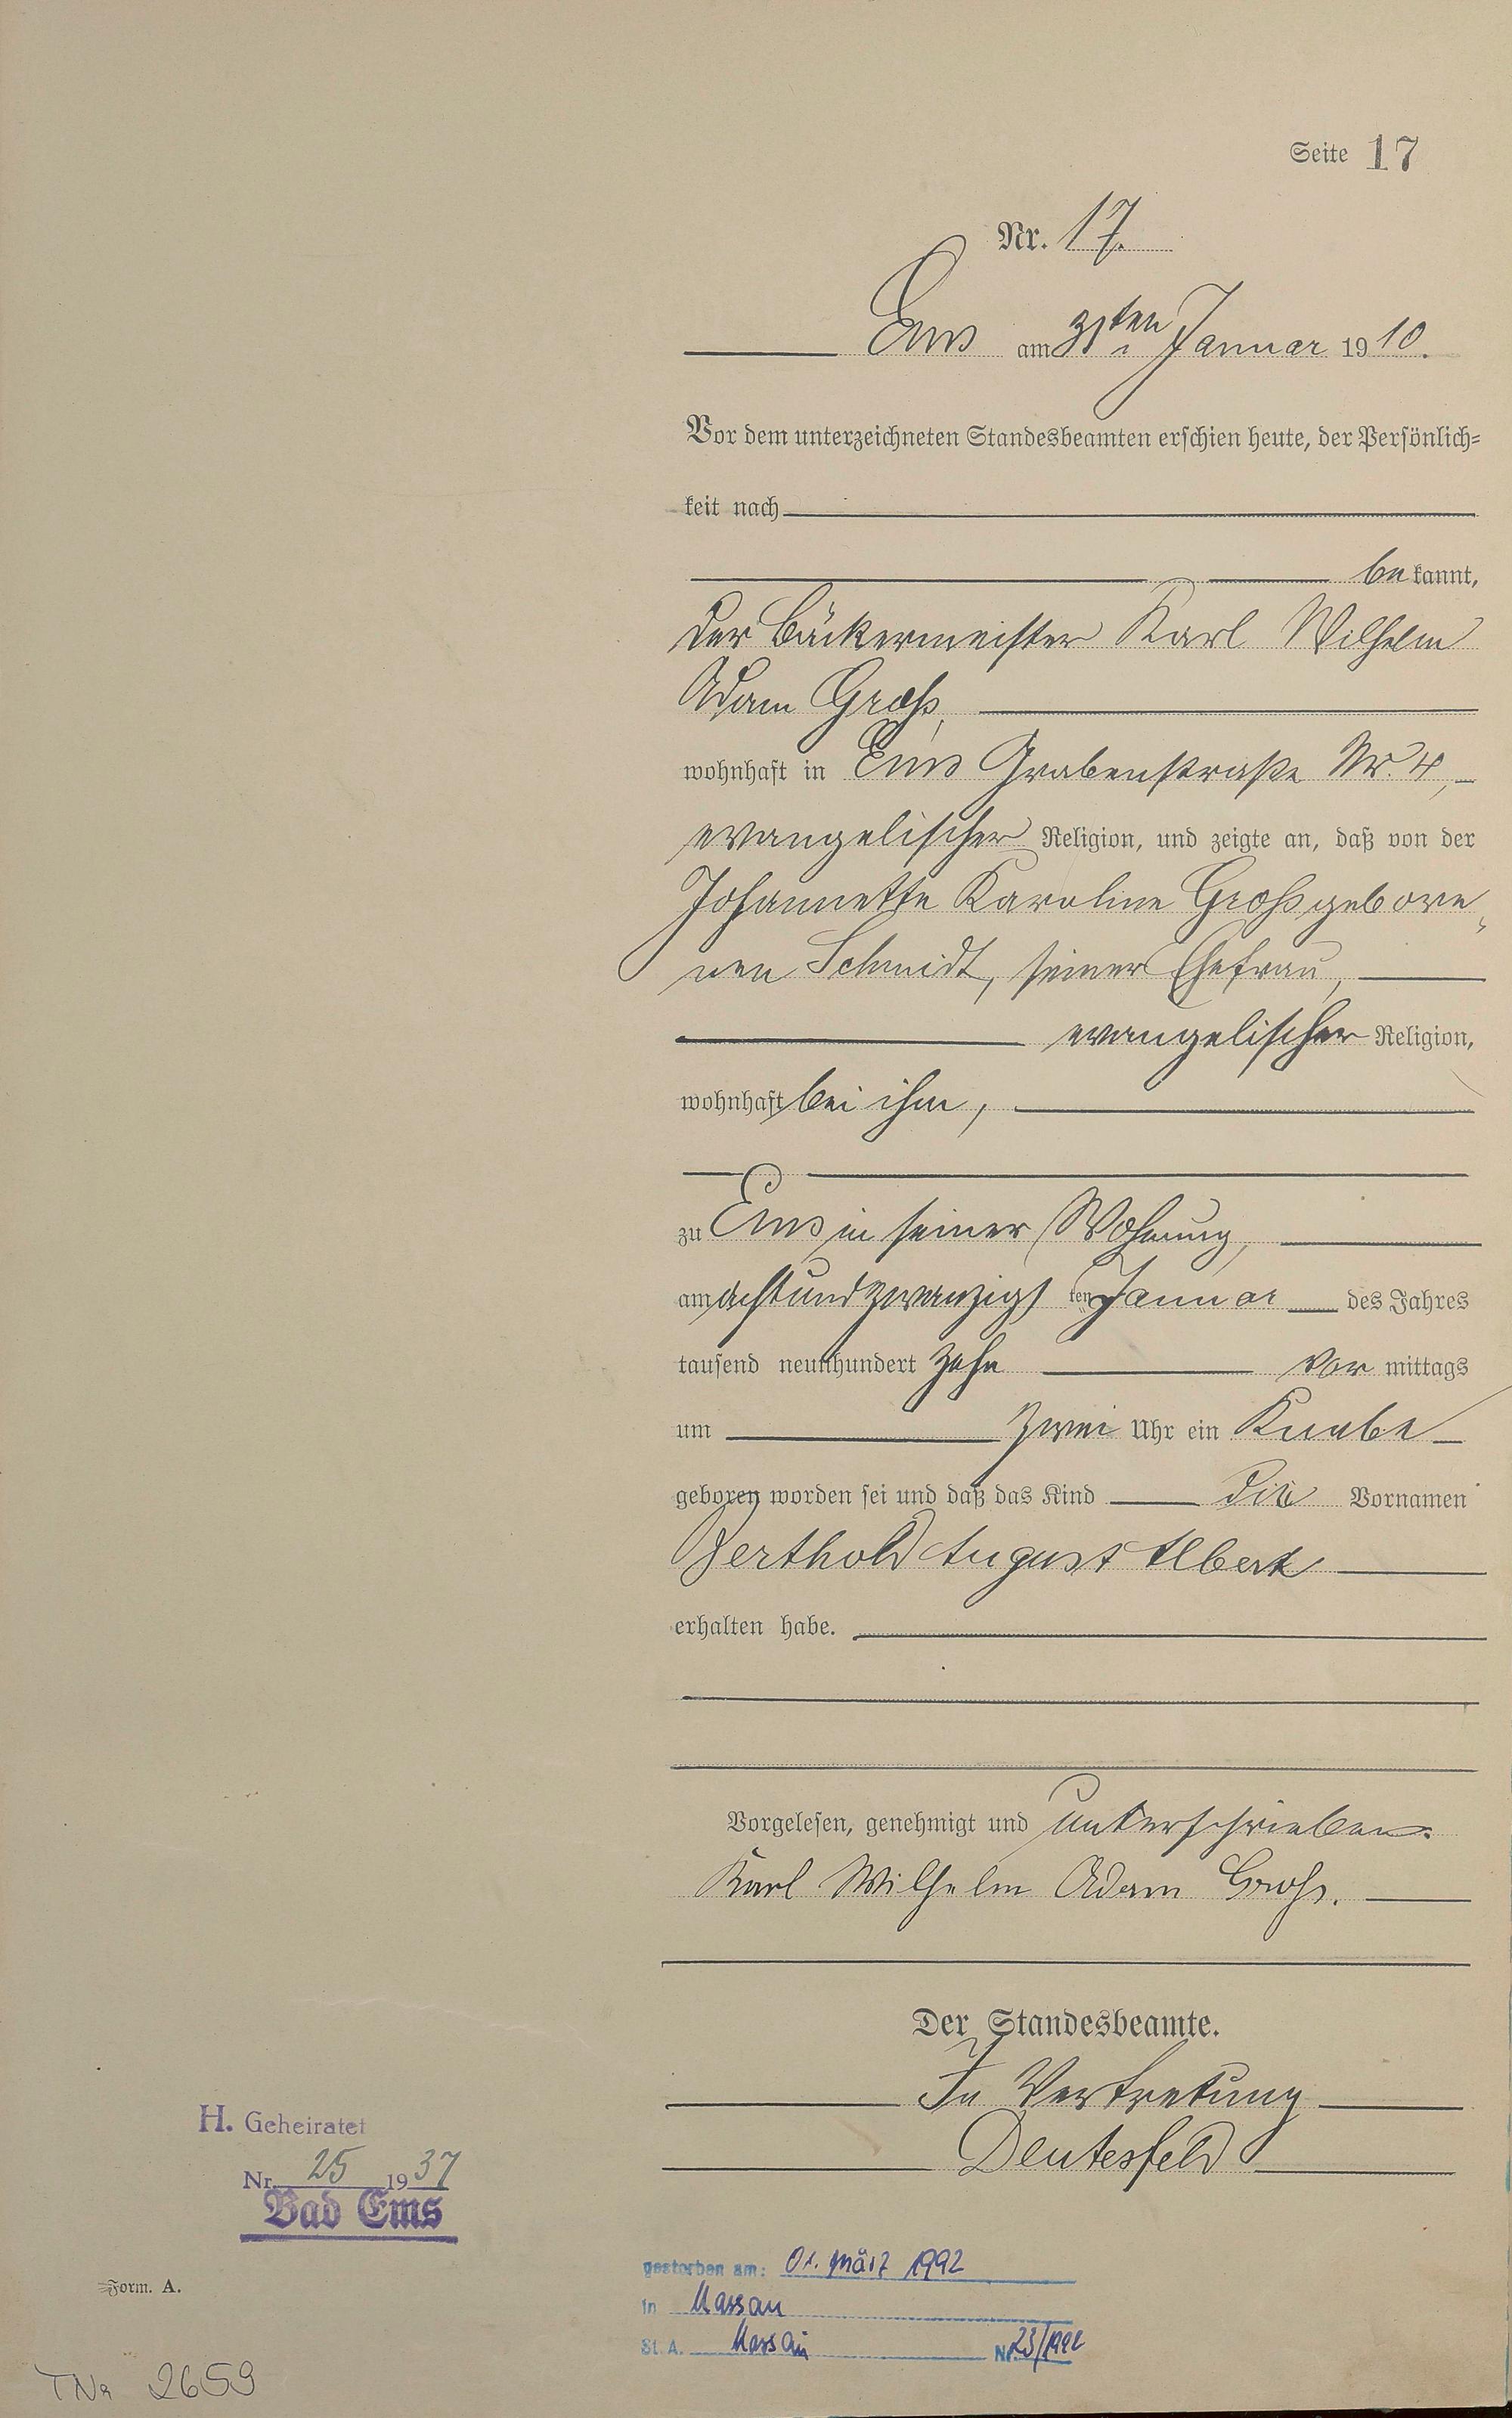 Seite 17
Nr. 17.
Ems am 31ten Januar 1910.
Vor dem unterzeichneten Standesbeamten erschien heute, der Persönlich=
keit nach
bekannt,
der Bäckermeister Karl Wilhelm
Adam Groß,
wohnhaft in Ems Grabenstraße Nr. 4,
evangelischer Religion, und zeigte an, daß von der
Johannette Karoline Groß gebore„
nen Schmidt, seiner Ehefrau,
evangelischer Religion,
wohnhaft bei ihm,
zu Ems in seiner Wohnung,
am achtundzwanzigsten Januar des Jahres
tausend neunhundert zehn vor mittags
um zwei Uhr ein Knabe
geboren worden sei und daß das Kind die Vornamen
Berthold August Albert
erhalten habe.
Vorgelesen, genehmigt und unterschrieben.
Karl Wilhelm Adam Groß.
Der Standesbeamte.
In Vertretung
Deutesfeld
H. Geheiratet
Nr. 25 1937
Bad Ems
gestorben am: 01. März 1992
in Nassau
St. A. Nassau Nr. 23/1992
Form. A.
TNr 2659